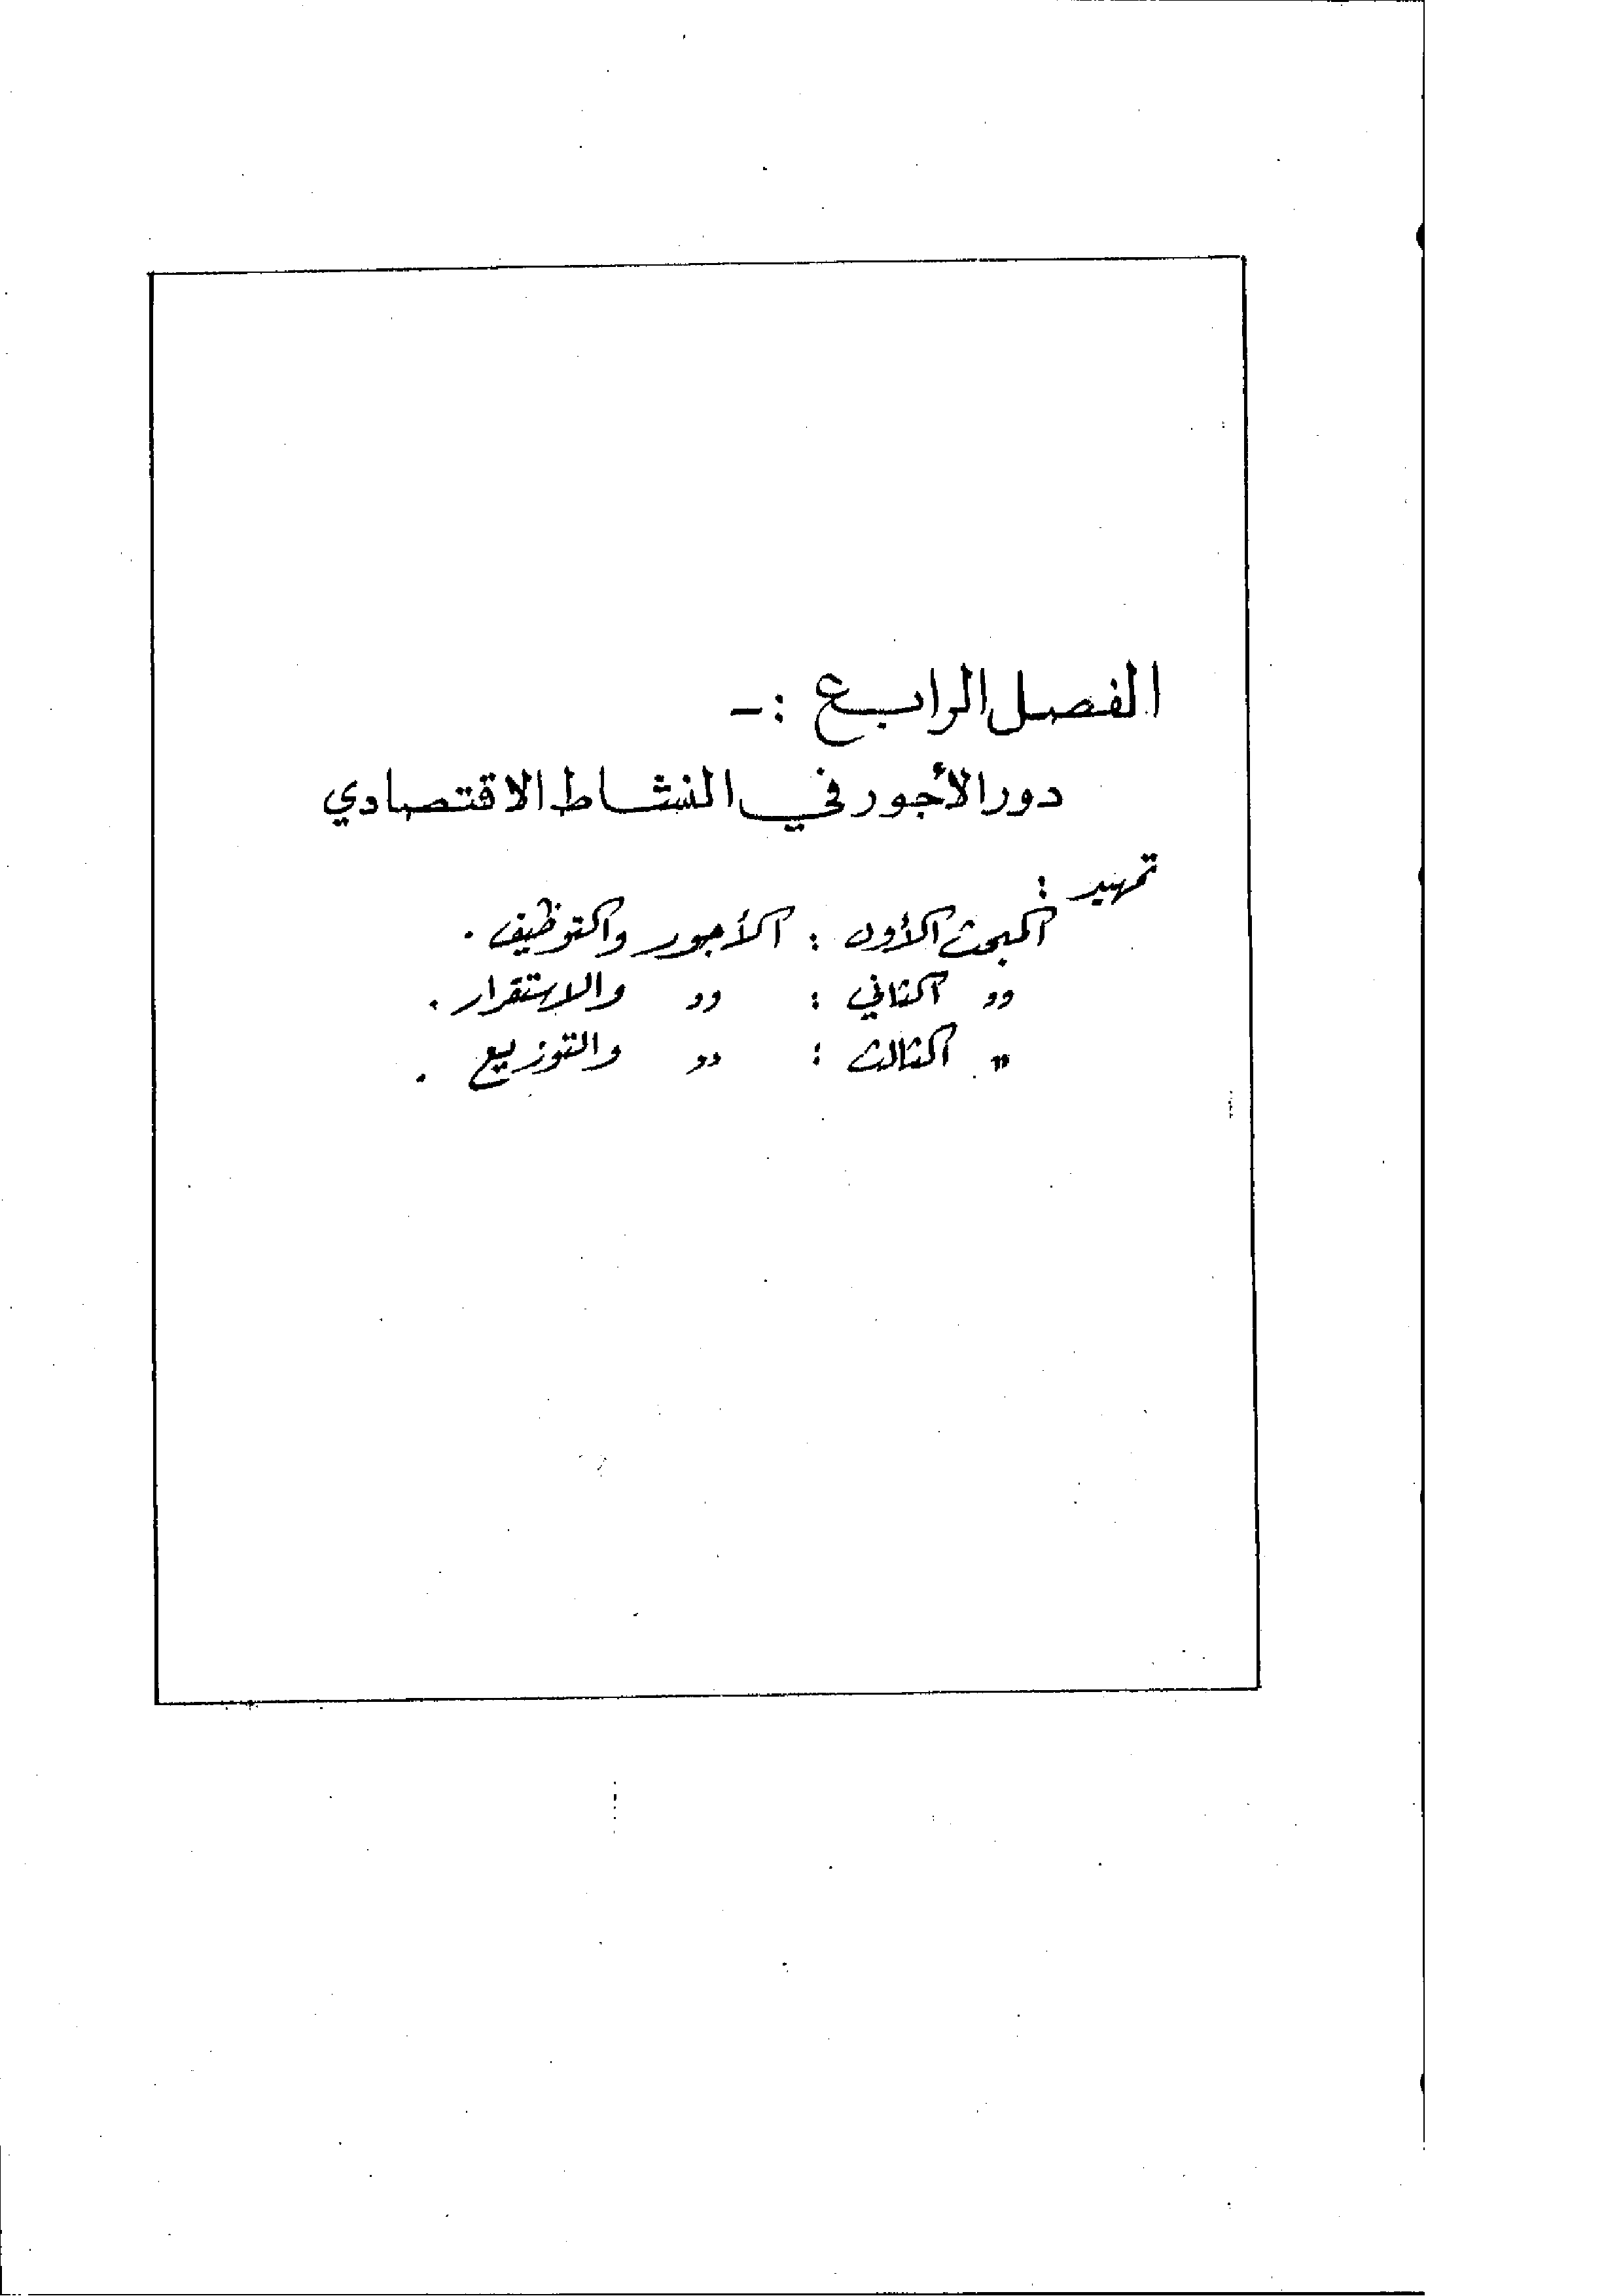 الفصل الرابع :-
دور الأجور في النشاط الاقتصادي
تمهيد :
المبحث الأول : الأجور والتوظيف .
،، الثاني : ،، والاستقرار .
" الثالث : ،، والتوزيع .